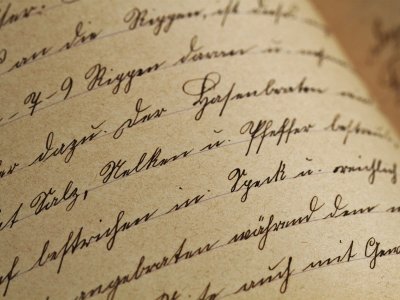 an die Rippen, ist diese
7-9 Rippen daran u.
dazu. Der Hasenbraten
Salz, Nelken u. Pfeffer
bestrichen in Speck u. reichlich
angebraten während dem
auch mit